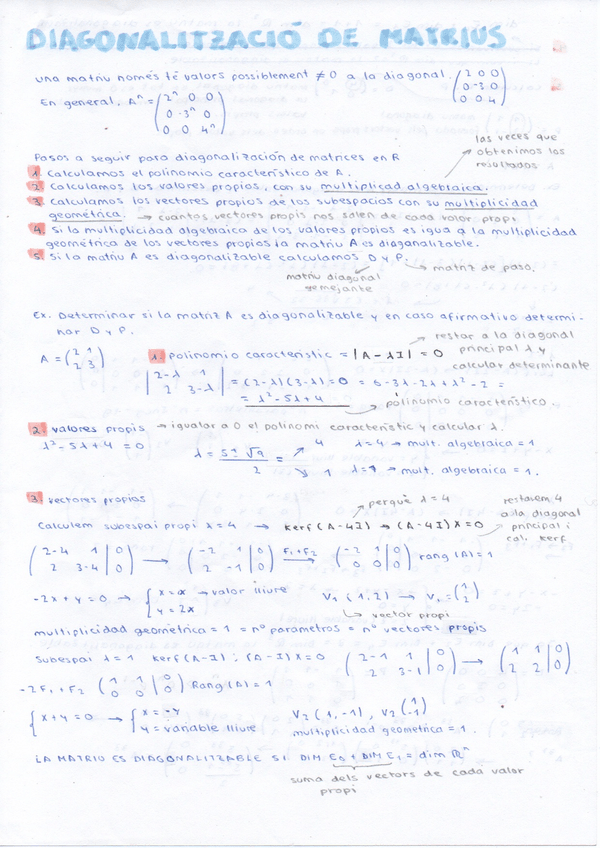 DIAGONALITZACIÓ DE MATRIUS
una matriu només té valors possiblement ≠ 0 a la diagonal. (2 0 0
0 -3 0
0 0 4)
En general, Aⁿ = (2ⁿ 0 0
0 -3ⁿ 0
0 0 4ⁿ)
las veces que
obtenimos los
resultados
Pasos a seguir para diagonalización de matrices en R
1. Calculamos el polinomio característico de A.
2. Calculamos los valores propios, con su multiplicad algebraica.
3. Calculamos los vectores propios de los subespacios con su multiplicidad
geométrica. → cuantos vectores propis nos salen de cada valor propi
4. Si la multiplicidad algebraica de los valores propios es igua a la multiplicidad
geométrica de los vectores propios la matriu A es diagonalizable.
5. Si la matriu A es diagonalizable calculamos D y P. → matriz de paso.
matriu diagonal
semejante
Ex. Determinar si la matriz A es diagonalizable y en caso afirmativo determi-
nar D y P.
restar a la diagonal
principal λ y
calcular determinante
A = (2 1
2 3)
1. polinomio característic = |A-λI| = 0
|2-λ 1
2 3-λ| = (2-λ)(3-λ)=0 = 6-3λ-2λ+λ²-2 =
= λ²-5λ+4
polinomio característico.
2. valores propis → igualar a 0 el polinomi característic y calcular λ.
λ²-5λ+4=0
λ = 5±√9 / 2
4 λ=4 → mult. algebraica = 1
1 λ=1 → mult. algebraica = 1.
3. vectores propios
perquè λ=4
restalem 4
a la diagonal
principal i
cal. kerf
Calculem subespai propi λ=4 → Kerf(A-4I) → (A-4I)X=0
(2-4 1 | 0
2 3-4 | 0) → (-2 1 | 0
2 -1 | 0) F₁+F₂ → (-2 1 | 0
0 0 | 0) rang(A)=1
-2x+y=0 → {x=α → valor lliure
y=2x
V₁(1,2) → V₁=(1
2)
vector propi
multiplicidad geométrica = 1 = nº parametros = nº vectores propis
Subespai λ=1 Kerf(A-I); (A-I)X=0 (2-1 1 | 0
2 3-1 | 0) → (1 1 | 0
2 2 | 0)
-2F₁+F₂ (1 1 | 0
0 0 | 0) Rang(A)=1
{x+y=0 → {x=-y
y=variable lliure
V₂(1,-1), V₂(1
-1)
multiplicidad geometrica = 1.
LA MATRIU ES DIAGONALITZABLE SI DIM E₀ + DIM E₁ = dim ℝⁿ
suma dels vectors de cada valor
propi